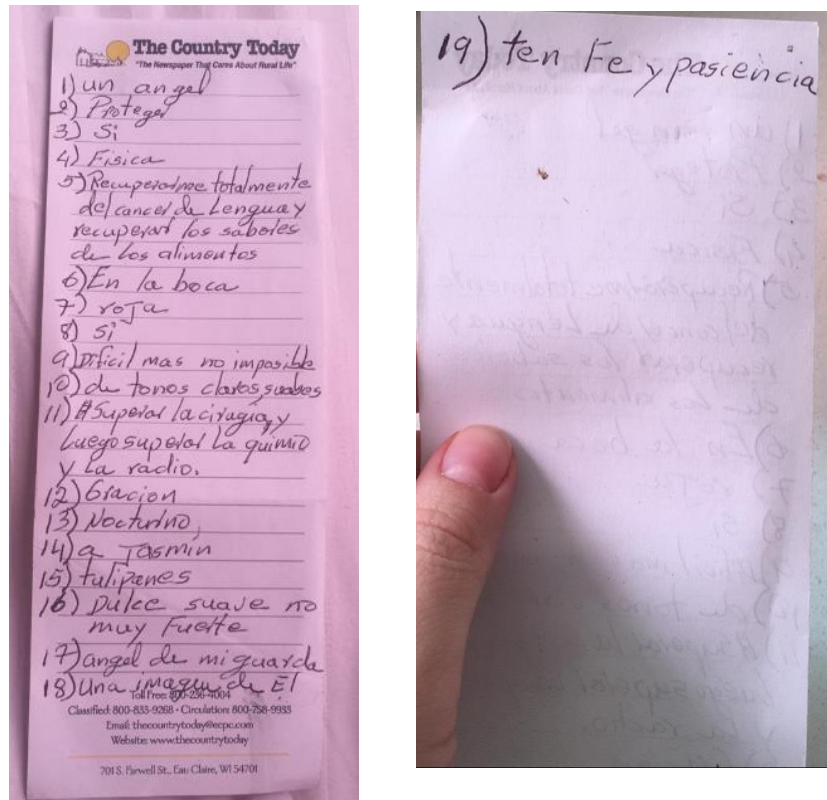 The Country Today
"The Newspaper That Cares About Rural Life"
1) un angel
2) Proteger
3) Si
4) Fisica
5) Recuperarme totalmente
del cancer de Lengua y
recuperar los sabores
de los alimentos
6) En la boca
7) roja
8) si
9) Dificil mas no imposible
10) de tonos claros, suabes
11) Superar la cirugia, y
Luego superar la quimio
y la radio.
12) Oracion
13) Nocturno,
14) a Jasmin
15) tulipanes
16) Dulce suave no
muy Fuerte
17) angel de mi guarda
18) Una imagen de El
Toll Free: 800-236-4004
Classified: 800-835-9268 • Circulation: 800-758-9933
Email: thecountrytoday@ecpc.com
Website: www.thecountrytoday
701 S. Farwell St., Eau Claire, WI 54701
19) ten Fe y pasiencia